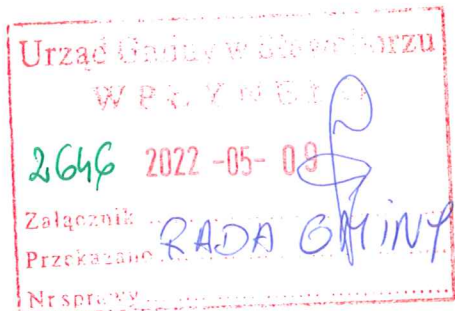 Urząd Gminy w Sławoborzu
WPŁYNĘŁO
2646 2022 -05- 09
Załącznik
Przekazano RADA GMINY
Nr sprawy